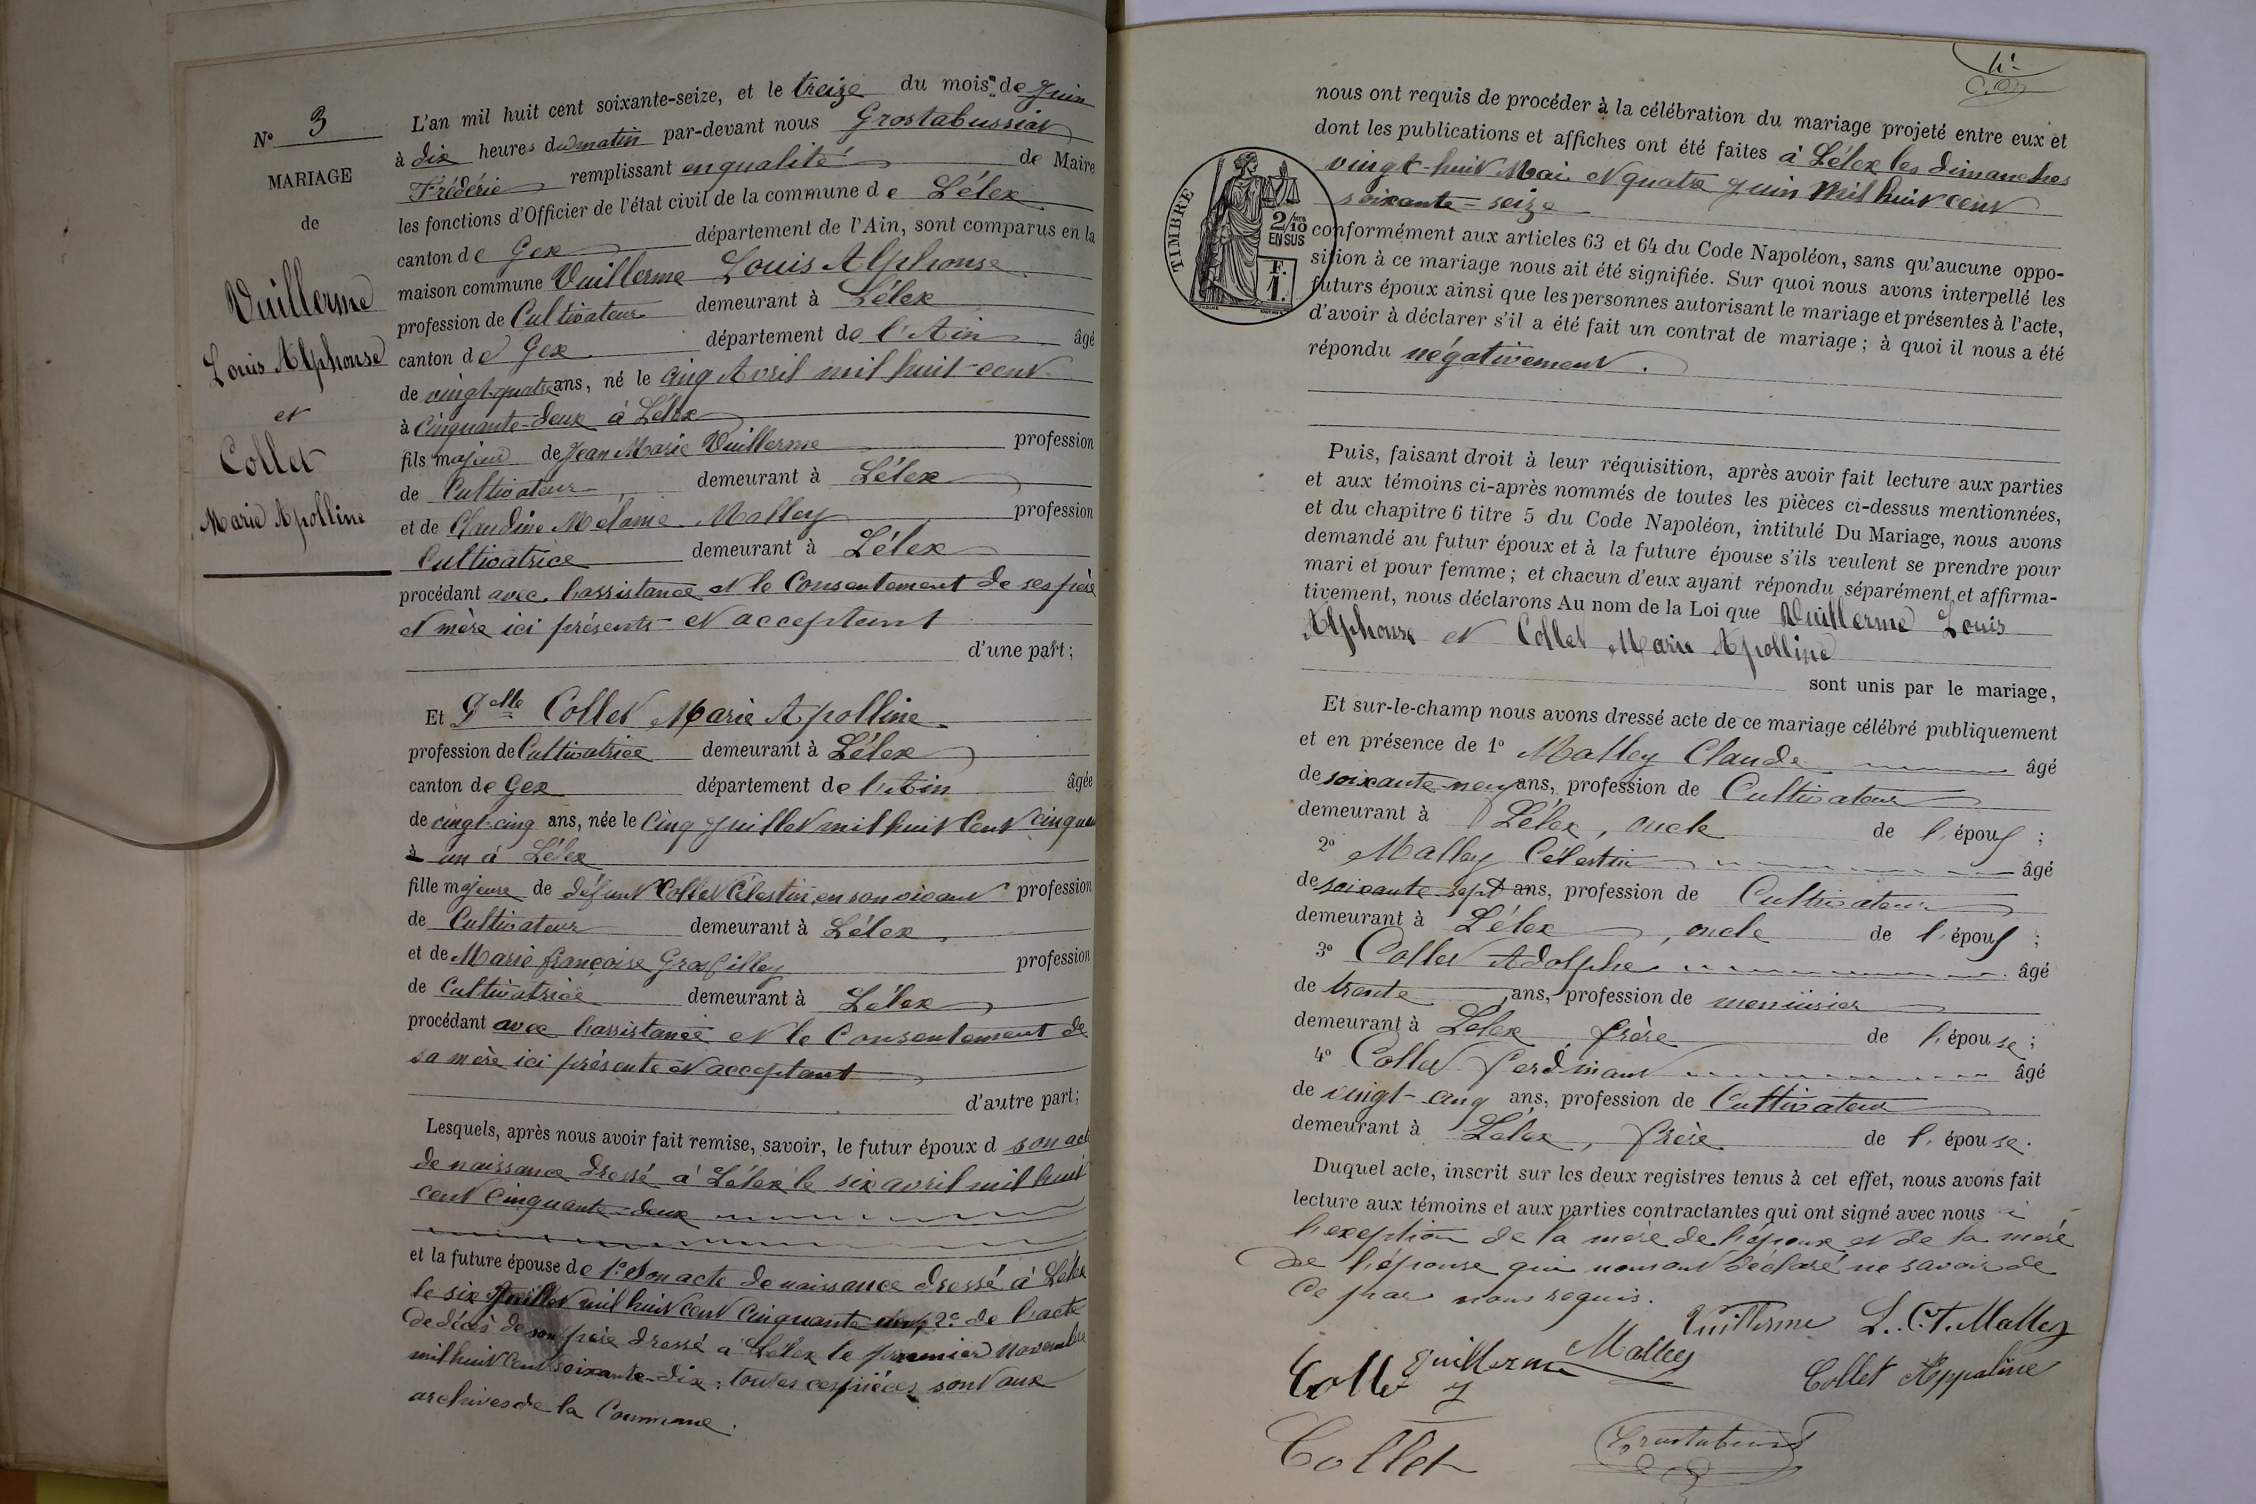 N° 3
MARIAGE
de
Vuillerme
Louis Alphonse
et
Collet
Marie Apolline
L'an mil huit cent soixante-seize, et le treize du mois de Juin
à dix heures du matin par-devant nous Grostabussiat
Frédéric remplissant en qualité de Maire
les fonctions d'Officier de l'état civil de la commune de Lélex
canton de Gex département de l'Ain, sont comparus en la
maison commune Vuillerme Louis Alphonse
profession de Cultivateur demeurant à Lélex
canton de Gex département de l'Ain âgé
de vingt-quatre ans, né le cinq Avril mil huit cent
à Cinquante-deux à Lélex
fils majeur de Jean Marie Vuillerme profession
de Cultivateur demeurant à Lélex
et de Claudine Mélanie Malley profession
Cultivatrice demeurant à Lélex
procédant avec l'assistance et le Consentement de ses père
et mère ici présents et acceptant
d'une part;
Et Dlle Collet Marie Apolline
profession de Cultivatrice demeurant à Lélex
canton de Gex département de l'Ain âgée
de vingt-cinq ans, née le Cinq Juillet mil huit Cent Cinquan
à un à Lélex
fille majeure de défunt Collet Célestin, en son vivant profession
de Cultivateur demeurant à Lélex
et de Marie françoise Grosfilley profession
de Cultivatrice demeurant à Lélex
procédant avec l'assistance et le Consentement de
sa mère ici présente et acceptant
d'autre part;
Lesquels, après nous avoir fait remise, savoir, le futur époux d son acte
de naissance dressé à Lélex le six avril mil huit
cent Cinquante-deux
et la future épouse de 1° son acte de naissance dressé à Lélex
le six Juillet mil huit cent Cinquante un, 2° de l'acte
de décès de son père dressé à Lélex le premier novembre
mil huit Cent soixante-dix; toutes ces pièces sont aux
archives de la Commune.
4e
nous ont requis de procéder à la célébration du mariage projeté entre eux et
dont les publications et affiches ont été faites à Lélex les dimanches
vingt-huit Mai et quatre Juin Mil huit cent
soixante-seize
TIMBRE
2/10
EN SUS
F.
1.
conformément aux articles 63 et 64 du Code Napoléon, sans qu'aucune oppo-
sition à ce mariage nous ait été signifiée. Sur quoi nous avons interpellé les
futurs époux ainsi que les personnes autorisant le mariage et présentes à l'acte,
d'avoir à déclarer s'il a été fait un contrat de mariage; à quoi il nous a été
répondu négativement.
Puis, faisant droit à leur réquisition, après avoir fait lecture aux parties
et aux témoins ci-après nommés de toutes les pièces ci-dessus mentionnées,
et du chapitre 6 titre 5 du Code Napoléon, intitulé Du Mariage, nous avons
demandé au futur époux et à la future épouse s'ils veulent se prendre pour
mari et pour femme; et chacun d'eux ayant répondu séparément et affirma-
tivement, nous déclarons Au nom de la Loi que Vuillerme Louis
Alphonse et Collet Marie Apolline
sont unis par le mariage,
Et sur-le-champ nous avons dressé acte de ce mariage célébré publiquement
et en présence de 1° Malley Claude âgé
de soixante-neuf ans, profession de Cultivateur
demeurant à Lélex, oncle de l'époux ;
2° Malley Célestin âgé
de soixante sept ans, profession de Cultivateur
demeurant à Lélex, oncle de l'époux ;
3° Collet Adolphe âgé
de trente ans, profession de menuisier
demeurant à Lélex, frère de l'épouse ;
4° Collet ferdinant âgé
de vingt-cinq ans, profession de Cultivateur
demeurant à Lélex, frère de l'épouse.
Duquel acte, inscrit sur les deux registres tenus à cet effet, nous avons fait
lecture aux témoins et aux parties contractantes qui ont signé avec nous à
l'exeption de la mère de l'époux et de la mère
de l'épouse qui nous ont déclaré ne savoir de
ce faire nous requis.
Vuillerme L. C. A. Malley
Collet Vuillerme Malley Collet Appoline
Collet Grostabussiat